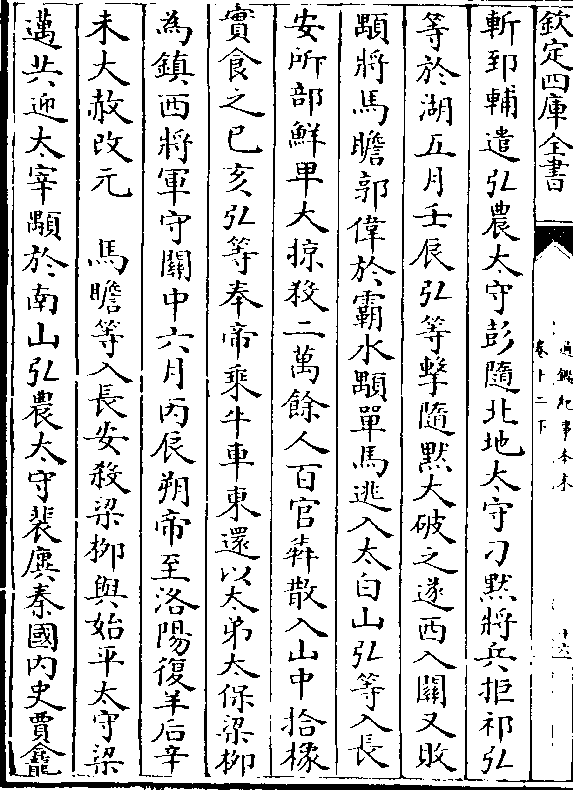 欽定四庫全書
通鑑紀事本末
卷十二下
十六
斬郅輔遣弘農太守彭隨北地太守刁默將兵拒祁弘
等於湖五月壬辰弘等擊隨默大破之遂西入關又敗
顒將馬瞻郭偉於霸水顒單馬逃入太白山弘等入長
安所部鮮卑大掠殺二萬餘人百官犇散入山中拾橡
實食之己亥弘等奉帝乘牛車東還以太弟太保梁柳
為鎮西將軍守關中六月丙辰朔帝至洛陽復羊后辛
未大赦改元　馬瞻等入長安殺梁柳與始平太守梁
邁共迎太宰顒於南山弘農太守裴廙秦國內史賈龕